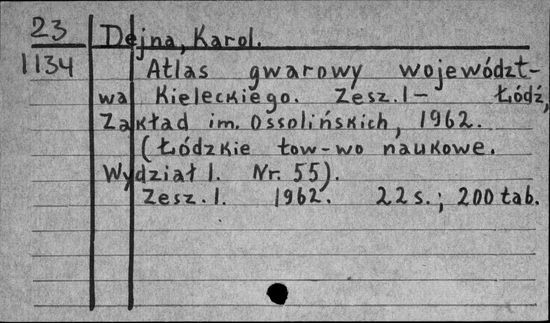 23
Dejna, Karol.
1134
Atlas gwarowy województ-
wa Kieleckiego. Zesz. 1- Łódź,
Zakład im. Ossolińskich, 1962.
(Łódzkie tow-wo naukowe.
Wydział 1. Nr. 55).
Zesz. 1. 1962. 22 s.; 200 tab.